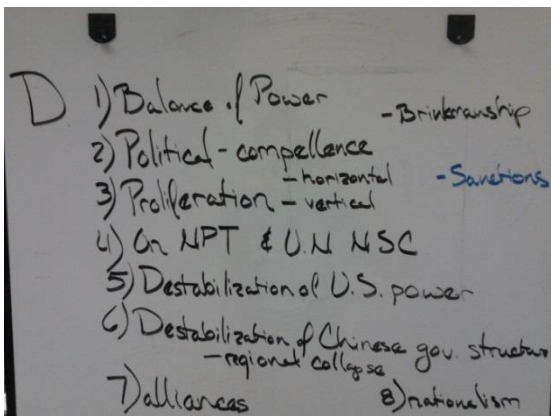 D. 1) Balance of Power
- Brinkmanship
2) Political - compellence
- horizontal
- Sanctions
3) Proliferation - vertical
4) On NPT & U.N NSC
5) Destabilization of U.S. power
6) Destabilization of Chinese gov. structure
- regional collapse
7) alliances
8) nationalism